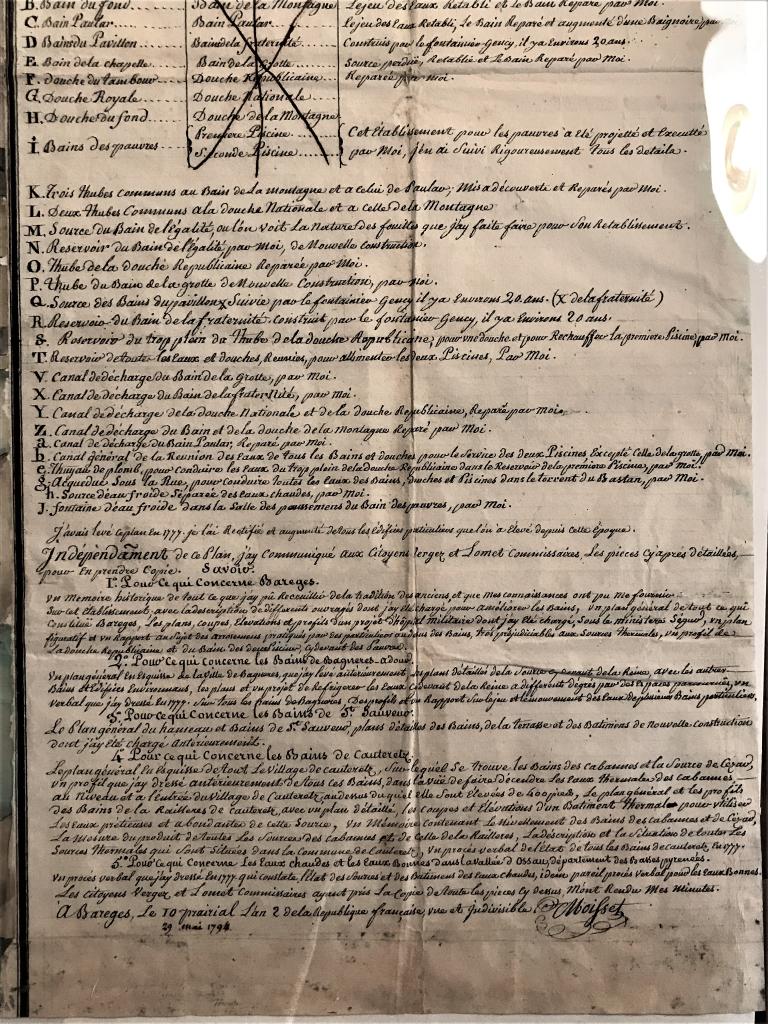 B. Bain du fond...... Bain de la Montagne Le jeu des Eaux Retabli et le Bain Reparé par Moi.
C. Bain Pautar...... Bain Pautar...... Le jeu des Eaux Retabli, Le Bain Reparé et augmenté d'une Baignoire, par
D Bain du Pavillon.... Bain de la fraternité..... Construis par le fontainier Gency, il y a Environs 20 ans.
E. Bain de la chapelle. Bain de la Grotte..... Source perdüe, Retablie et Le Bain Reparé par Moi.
F. Douche du tambour Douche Républicaine.. Reparée par Moi.
G. Douche Royale.... Douche Nationale
H. Douche du fond.... Douche de la Montagne
I. Bains des pauvres..... Premiere Piscine.... Seconde Piscine.... Cet Etablissement pour les pauvres a Eté projetté et Executté
par Moi, j'en ai Suivi Rigoureusement tous les details.
K. Trois thubes Communs au Bain de La montagne et a celui de Pautar; Mis a découverte et Reparés par Moi.
L. Deux thubes Communs a la douche Nationale et a celle de la Montagne
M. Source du Bain de l'égalité, ou l'on voit La Nature des fouilles que j'ay faite faire pour Son Retablissement.
N. Reservoir du Bain de l'égalité, par Moi, de Nouvelle Construction.
O. Thube de la douche Republicaine Reparée par Moi.
P. Thube du Bain de la grotte de Nouvelle Construction, par Moi.
Q. Source des Bains du pavillon X Suivie par le fontainier Gency il y a Environs 20. ans. (X de la fraternité)
R. Reservoir du Bain de la fraternité Construit par le fontainier Gency, il y a Environs 20 ans.
S. Reservoir du trop plein du Thube de la douche Republicaine, pour une douche et pour Rechauffer la premiere Piscine, par Moi.
T. Reservoir de toutes les Eaux et douches, Reunies, pour allimenter les deux Piscines, Par Moi.
V. Canal de décharge du Bain de la Grotte, par Moi.
X. Canal de décharge du Bain de la fraternité, par Moi.
Y. Canal de décharge de la douche Nationale et de la douche Republicaine, Reparé par Moi.
Z. Canal de décharge du Bain et de la douche de la montagne Reparé par Moi.
a. Canal de décharge du Bain Pautar, Reparé par Moi.
b. Canal général de la Reunion des Eaux de tous les Bains et douches pour le Service des deux Piscines Excepté Celle de la grotte, par Moi.
e. Thuyau de plomb, pour conduire les Eaux du trop plein de la douche Republicaine dans le Reservoir de la premiere Piscine, par Moi.
g. Acqueduc Sous la Rue, pour Conduire toutes les Eaux des Bains, duches et Piscines dans le torrent du Bastan, par Moi.
h. Source d'eau froide Separée des Eaux chaudes, par Moi.
J. fontaine d'eau froide dans la Salle des pansemens du Bain des pauvres, par Moi.
J'avais levé ce plan En 1777. je l'ai Rectifié et augmenté de tous les Edifices particuliers que l'on a Elevé depuis Cette Epoque.
Indépendament de ce Plan, j'ay Communiqué aux Citoyens Verger et Lomet Commissaires, Les pieces cy apres détaillées,
pour En prendre Copie. Savoir.
1.º Pour Ce qui Concerne Bareges.
Un Memoire historique de tout Ce que j'ay pû Recueillir de la tradition des anciens, et que mes connaissances ont pu me fournir
Sur cet Etablissement, avec la description de differents ouvrages dont j'ay eté chargé pour améliorer les Bains, Un plan général de tout ce qui
Constitue Bareges, Les plans, coupes, Elevations et profils d'un projet d'hôpital militaire dont j'ay été chargé, Sous le ministere Segur, un plan
figuratif et un Rapport au Sujet des arrosemens pratiqués par des particuliers au dessus des Bains, très préjudiciables aux Sources Thermales, Un profil de
La douche Republicaine et du Bain cydevant
2.º Pour Ce qui Concerne les Bains de Bagneres-adour.
Un plan général en Esquisse de La Ville de Bagneres, que j'ay levé anterieurement, les plans détaillés de la Source cy devant de la Reine, avec les autres
Bains et Edifices Environnans, les plans et un projet de Refrigerer les Eaux Cy devant de la Reine a différents degrés par des Espaces parcourues, un
verbal que j'ay dressé En 1777. Sur tous les Bains de Bagneres, Des profils et un Rapport Sur le jeu et le mouvement des Eaux de plusieurs Bains particuliers.
3.º Pour Ce qui Concerne les Bains de S.t Sauveur.
Le Plan général du hameau et Bains de S.t Sauveur, plans détaillés des Bains, de la terrasse et des Batimens de Nouvelle Construction
dont j'ay été Chargé Anterieurement.
4. Pour Ce qui Concerne les Bains de Cauteretz.
Le plan général en Esquisse de tout Le Village de Cauteretz, Sur lequel Se trouve les Bains des Cabannes et la Source de Cézar,
Un profil que j'ay dressé anterieurement de tous ces Bains, dans la vüe de faire décendre Les Eaux Thermales des Cabannes,
au Niveau et a l'entrée du Village de Cauteretz, au dessus duquel elle Sont Elevées de 400 pieds, Le plan général et les profils
des Bains de la Raillere de Cauteretz, avec un plan détaillé, les Coupes et Elévations d'un Batiment Thermal, pour Utiliser
Les Eaux prétieuses et abondantes de Cette Source, Un Mémoire Contenant Le Nivellement des Bains des Cabannes et de Cézar,
La Mesure du produit de toutes Les Sources des Cabannes et de Celle de la Raillere, La description et la Situation de toutes Les
Sources Thermales qui Sont Sittuées dans la Commune de Cauteretz, Un procès verbal de l'état de tous les Bains de Cauteretz, En 1777.
5.º Pour Ce qui Concerne Les Eaux chaudes et les Eaux Bonnes dans la Vallée d'Ossau, département des Basses pyrenées.
Un procès verbal que j'ay dressé En 1777. qui Constate l'état des Sources et des Batimens des Eaux chaudes, idem pareil procès verbal pour les Eaux Bonnes.
Les Citoyens Verger et Lomet Commissaires ayant pris La Copie de toute les pieces Cy dessus, M'ont Rendu Mes Minutes.
A Bareges, Le 10 prairial L'an 2 de la Republique française, une et Indivisible. Moisset
29 mai 1794.